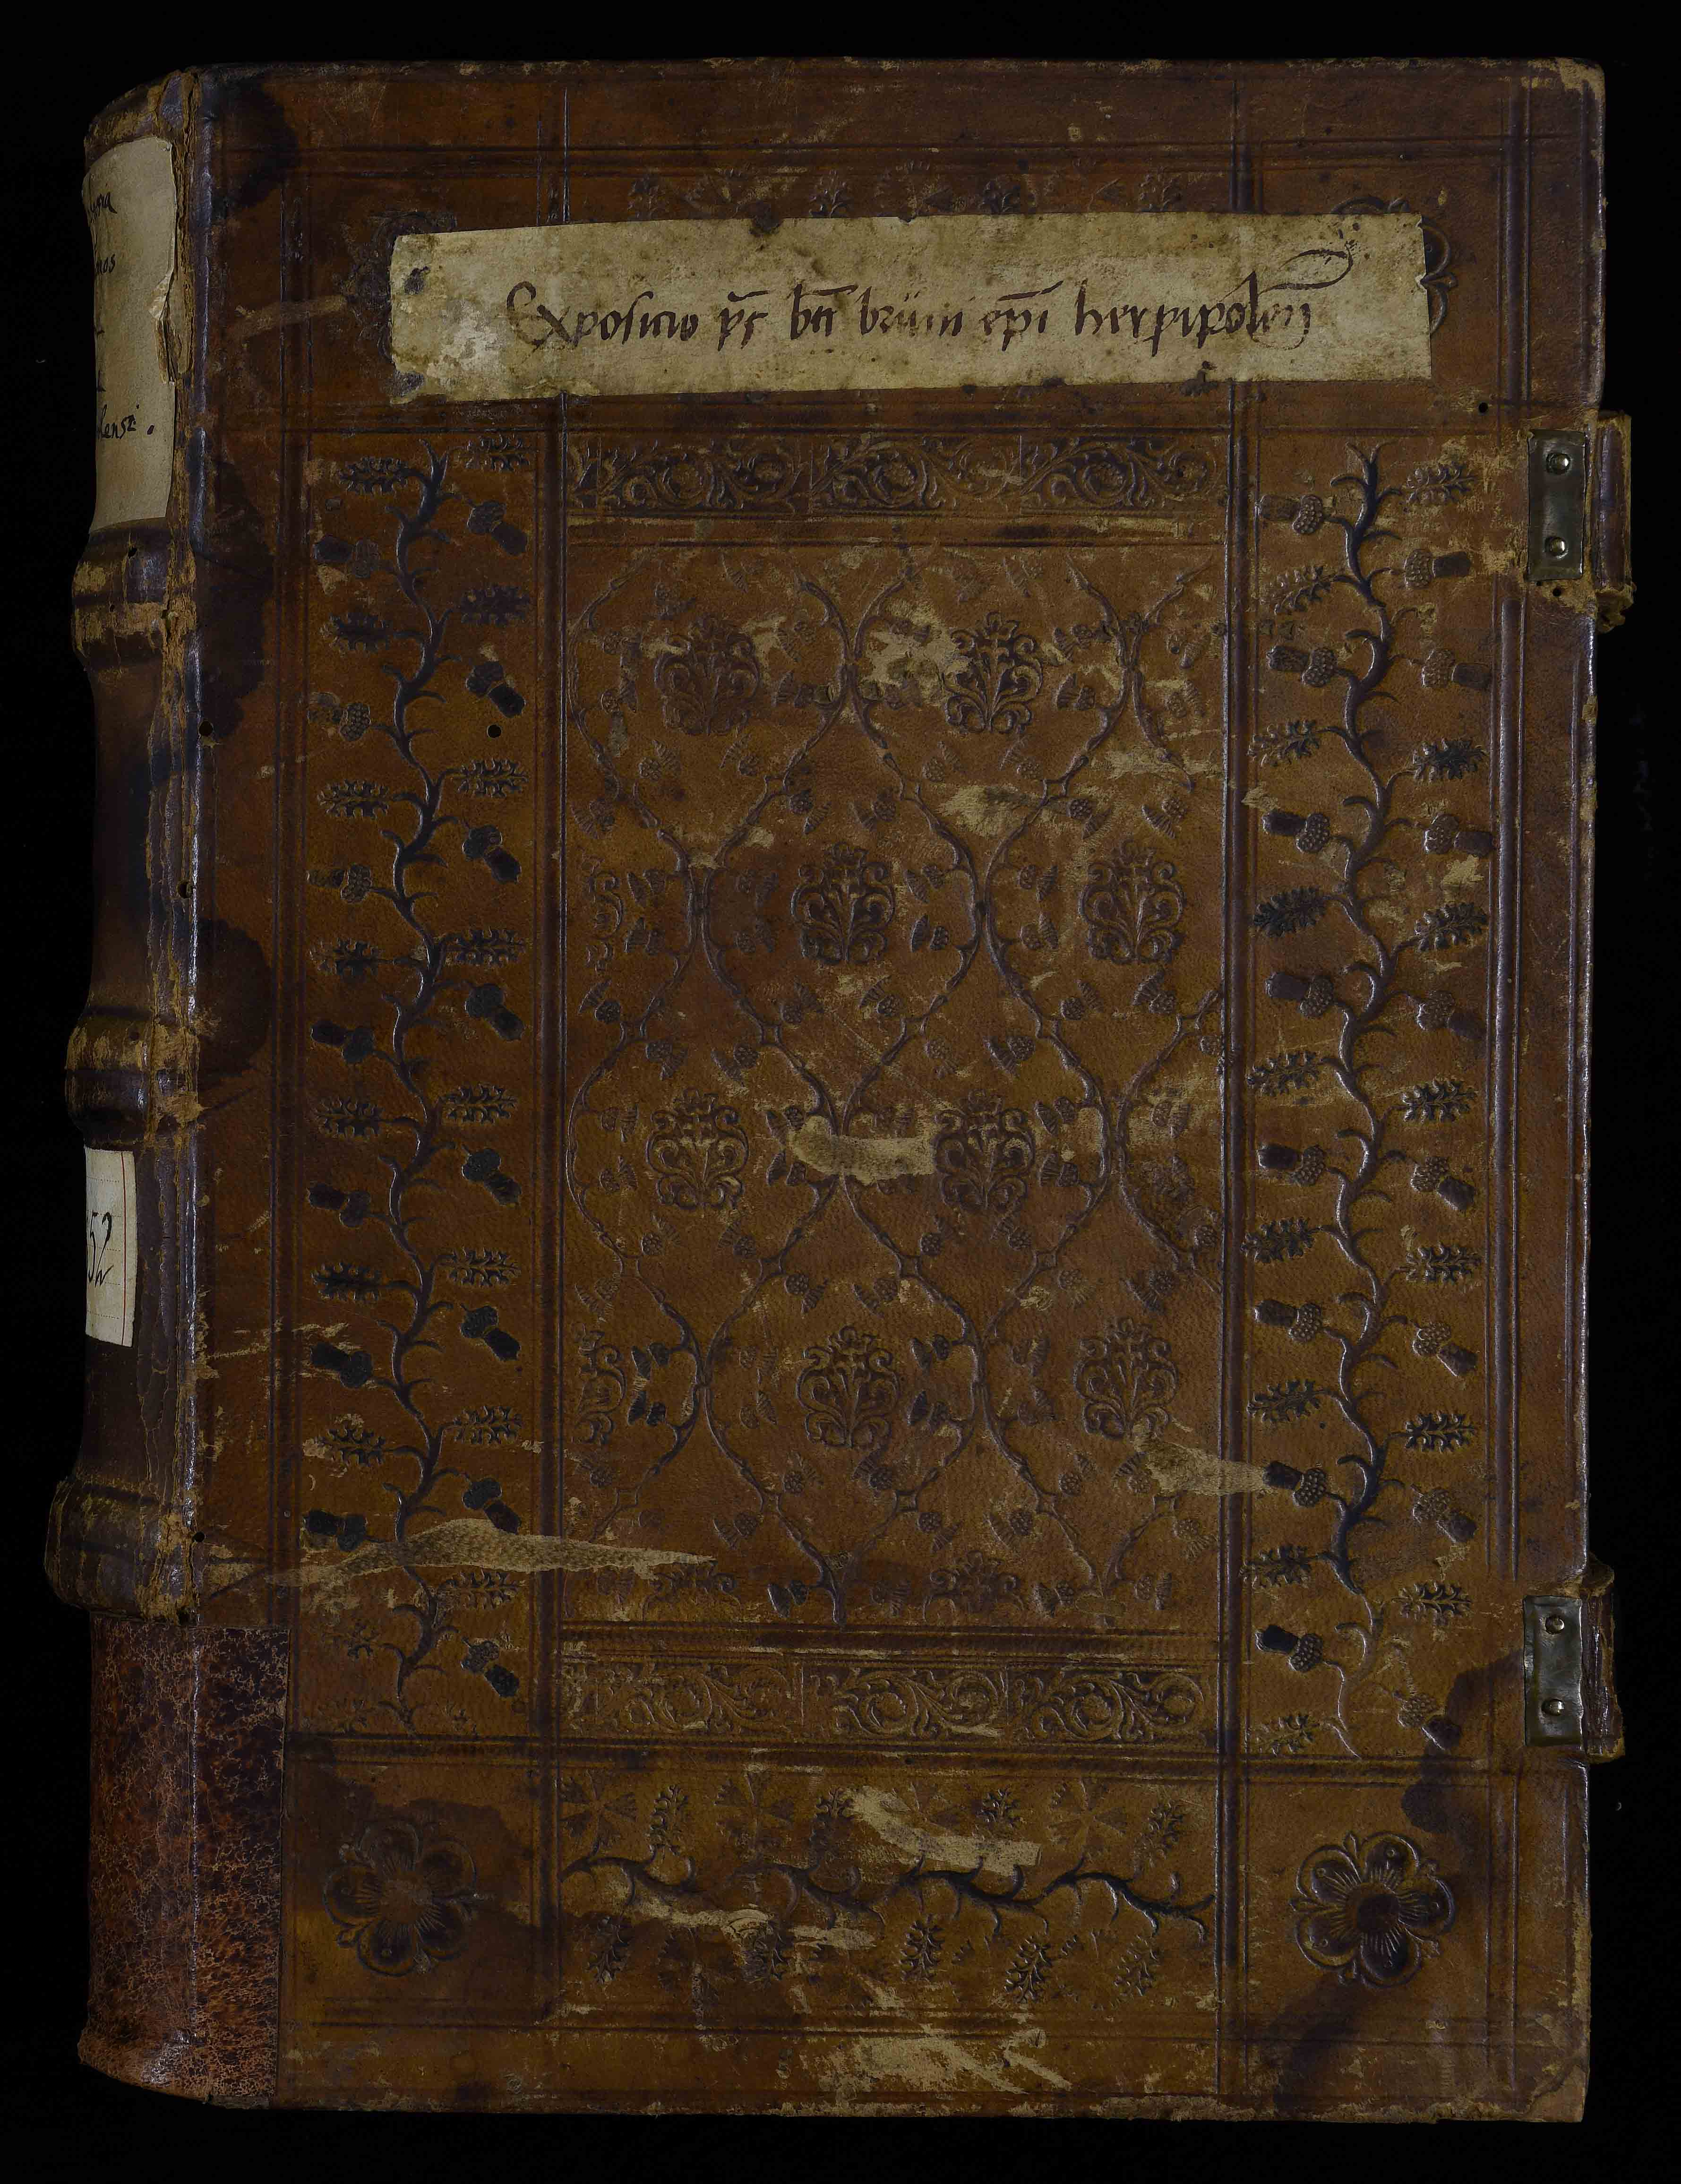 Expositio ps̄ bti brūni ep̄i herpipoleñ
nos
lensi.
52